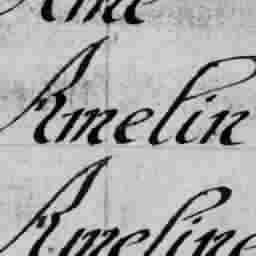 Ame
Amelin
Ameline